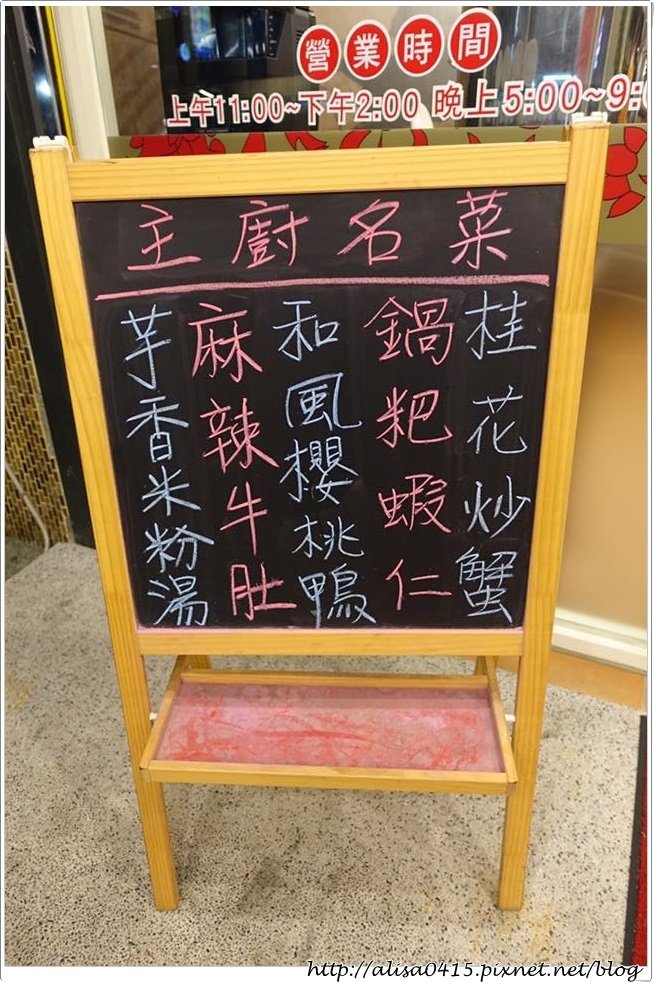 營業時間
上午11:00~下午2:00 晚上5:00~9:0
主廚名菜
桂花炒蟹
鍋粑蝦仁
和風櫻桃鴨
麻辣牛肚
芋香米粉湯
http://alisa0415.pixnet.net/blog